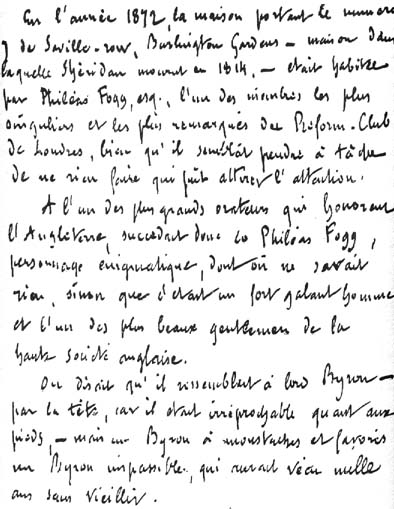 En l'année 1872, la maison portant le numéro
7 de Saville-row, Burlington Gardens – maison dans
laquelle Shéridan mourut en 1814, – était habitée
par Philéas Fogg, esq., l'un des membres les plus
singuliers et les plus remarqués du Reform-Club
de Londres, bien qu'il semblât prendre à tâche
de ne rien faire qui pût attirer l'attention.
A l'un des plus grands orateurs qui honorent
l'Angleterre, succédait donc ce Philéas Fogg,
personnage énigmatique, dont on ne savait
rien, sinon que c'était un fort galant homme
et l'un des plus beaux gentlemen de la
haute société anglaise.
On disait qu'il ressemblait à lord Byron –
par la tête, car il était irréprochable quant aux
pieds, – mais un Byron à moustaches et favoris
un Byron impassible, qui aurait vécu mille
ans sans vieillir.